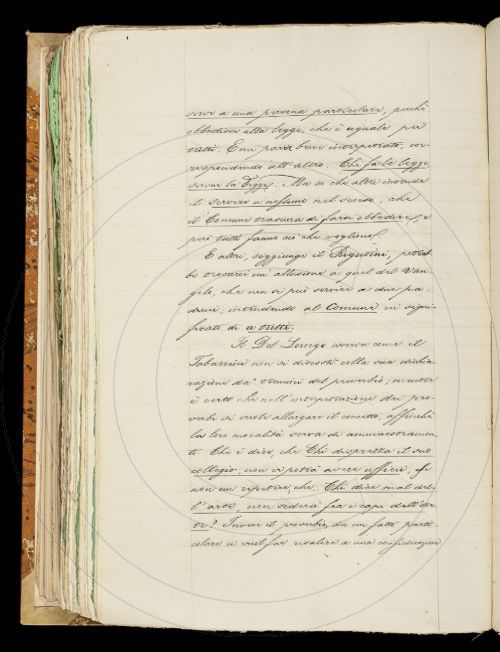 serve a una persona particolare, perchè
obbedisce alla legge, che è uguale per
tutti. E mi pare bene interpretato, cor-
rispondendo all'altro. Chi fa la legge
servar la degge. Ma so che altri intende
il servire a nessuno nel senso, che
il Comune trascura di farsi obbedire, e
però tutti fanno ciò che vogliono.
E altri, soggiunge il Rigutini, potreb
be trovarci un'allusione a quel del Van
gelo, che non si può servire a due pa-
droni, intendendo al Comune in signi-
ficato di a tutti.
Il Del Lungo osserva come il
Tabarrini non si discosti colla sua dichia
razione da' termini del proverbio; mentre
è certo che nell'interpretazione dei pro-
verbi si vuole allargare il concetto, affinchè
la loro moralità serva di ammaestramen-
to. Che è dire, che Chi disprezza il suo
collegio, non vi potrà avere uffici, se
non un ripetere, che: Chi dice mal del-
l'arte, non sederà fra i capi dell'ar-
te? Invece il proverbio, da un fatto parti-
colare ci vuol far risalire a una considerazione